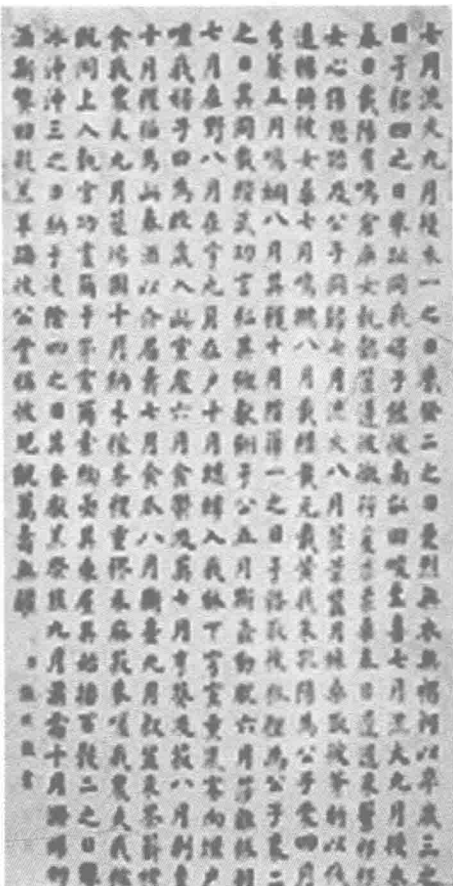 七月流火九月授衣一之日觱發二之日栗烈無衣無褐何以卒歲三之
日于耜四之日舉趾同我婦子饁彼南畝田畯至喜七月流火九月授衣
春日載陽有鳴倉庚女執懿筐遵彼微行爰求柔桑春日遲遲采蘩祁祁
女心傷悲殆及公子同歸七月流火八月萑葦蠶月條桑取彼斧斨以伐
遠揚猗彼女桑七月鳴鵙八月載績載玄載黃我朱孔陽為公子裳四月
秀葽五月鳴蜩八月其穫十月隕蘀一之日于貉取彼狐狸為公子裘二
之日其同載纘武功言私其豵獻豜于公五月斯螽動股六月莎雞振羽
七月在野八月在宇九月在戶十月蟋蟀入我牀下穹窒熏鼠塞向墐戶
嗟我婦子曰為改歲入此室處六月食鬱及薁七月亨葵及菽八月剝棗
十月穫稻為此春酒以介眉壽七月食瓜八月斷壺九月叔苴采荼薪樗
食我農夫九月築場圃十月納禾稼黍稷重穋禾麻菽麥嗟我農夫我稼
既同上入執宮功晝爾于茅宵爾索綯亟其乘屋其始播百穀二之日鑿
冰沖沖三之日納于凌陰四之日其蚤獻羔祭韭九月肅霜十月滌場朋
酒斯饗曰殺羔羊躋彼公堂稱彼兕觥萬壽無疆